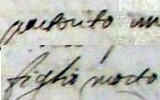 partorito un
figlio morto